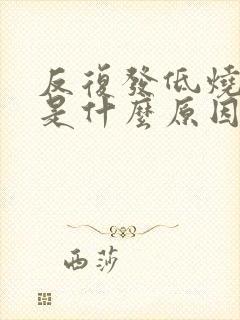 反復發低燒
是什麼原因
西莎